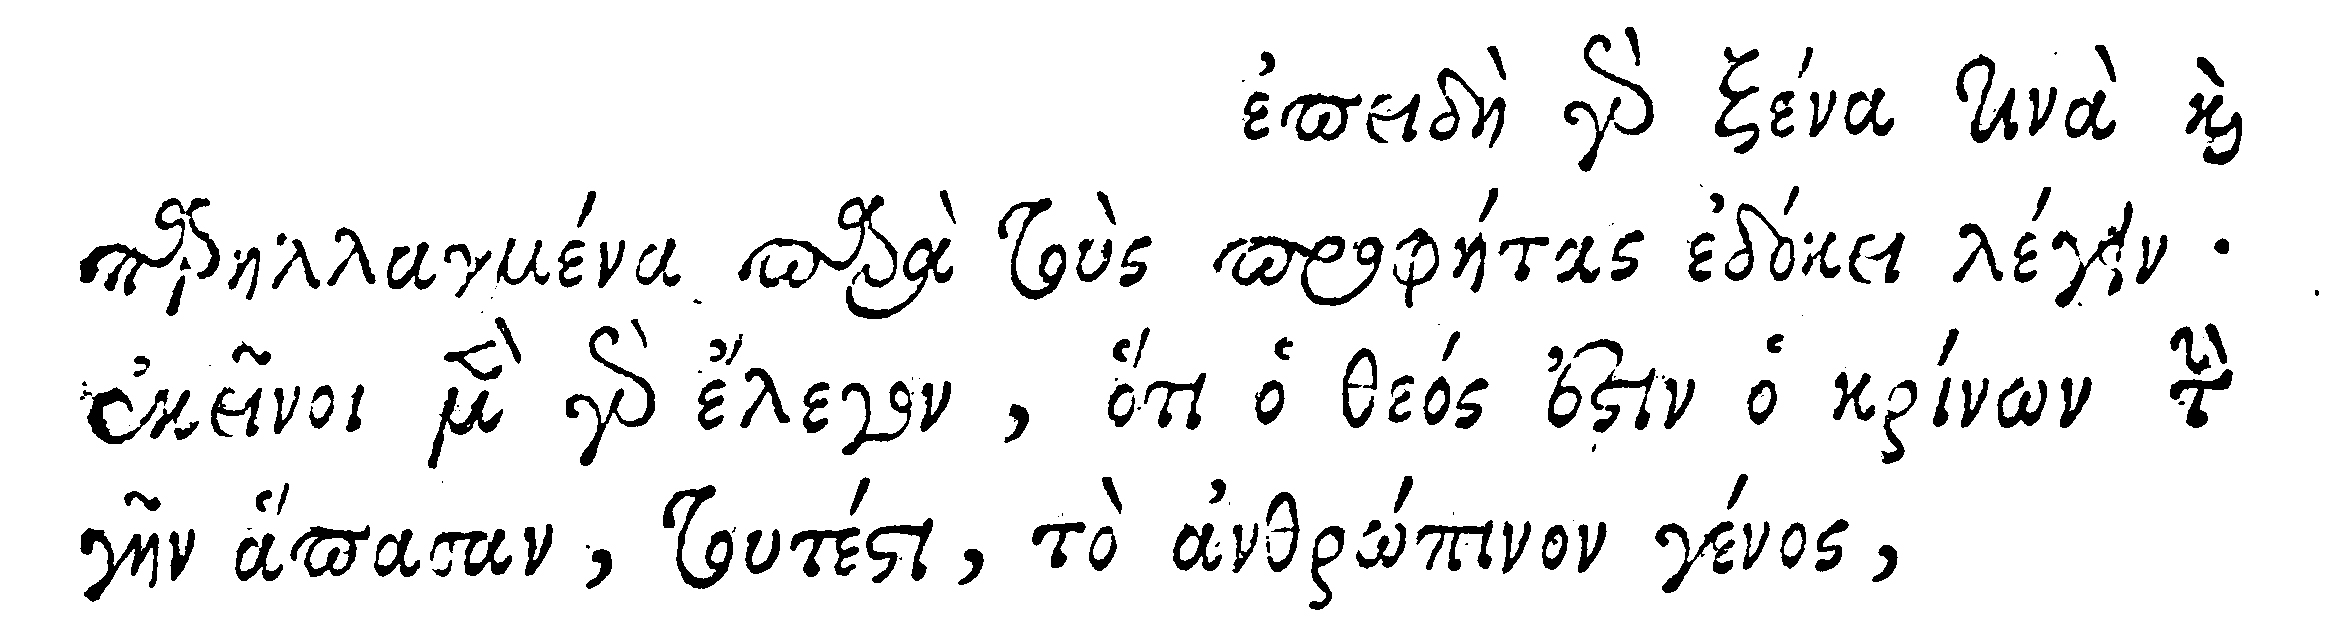 ἐπειδὴ γὰρ ξένα τινὰ καὶ
παρηλλαγμένα παρὰ τοὺς προφήτας ἐδόκει λέγειν·
ἐκεῖνοι μὲν γὰρ ἔλεγον, ὅτι ὁ θεός ἐστιν ὁ κρίνων τὴν
γῆν ἅπασαν, τουτέστι, τὸ ἀνθρώπινον γένος,